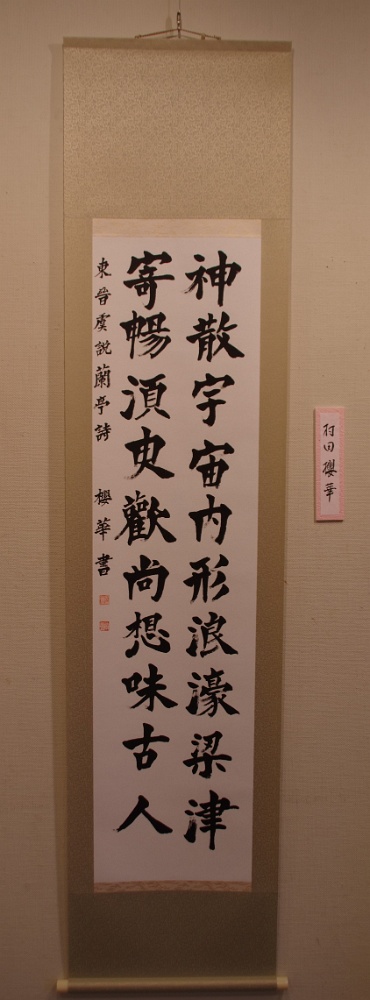 神散宇宙内形浪濠梁津
寄暢湏臾歡尚想味古人
東晉虞說蘭亭詩 櫻華書
田櫻華